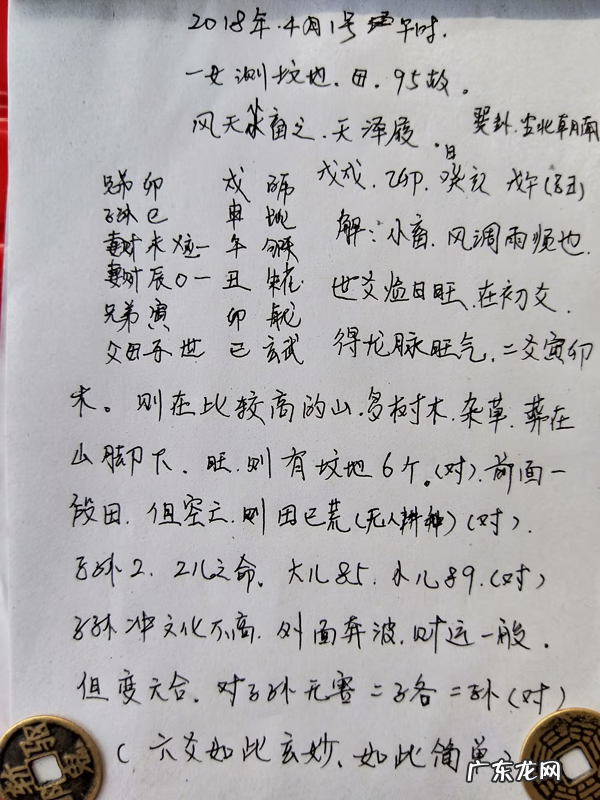 2018年.4月1号 午时.
一女测坟地.田.95故。
风天小畜之.天泽履. 巽卦.坐北朝南
兄弟 卯 戌 戊戌.乙卯.癸亥日 戊午(子丑)
子孙 巳 申 解:小畜.风调雨顺也.
妻财 未 应 午 世爻临日旺.在初爻.
妻财 辰 O 丑 朱雀 得龙脉旺气.二爻寅卯
兄弟 寅 卯 青龙
父母 子 世 巳 玄武
木。则在比较高的山.多树木.杂草.葬在
山脚下.旺.则有坟地6个。(对).前面一
段田.但空亡.则田已荒(无人耕种)(对).
子孙2.2儿之命.大儿85.小儿89.(对)
子孙冲文化不高.外面奔波.财运一般.
但变六合.对子孙无害二子各二孙(对)
(六爻如此玄妙、如此简单)
广东龙网